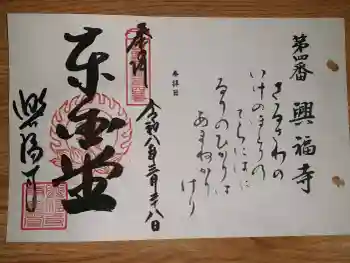 第四番 興福寺
さるさわの
いけのほとりの
てらにはに
るりのひかりは
あまねかり
けり
参拝日
奉拝
東金堂
興福寺